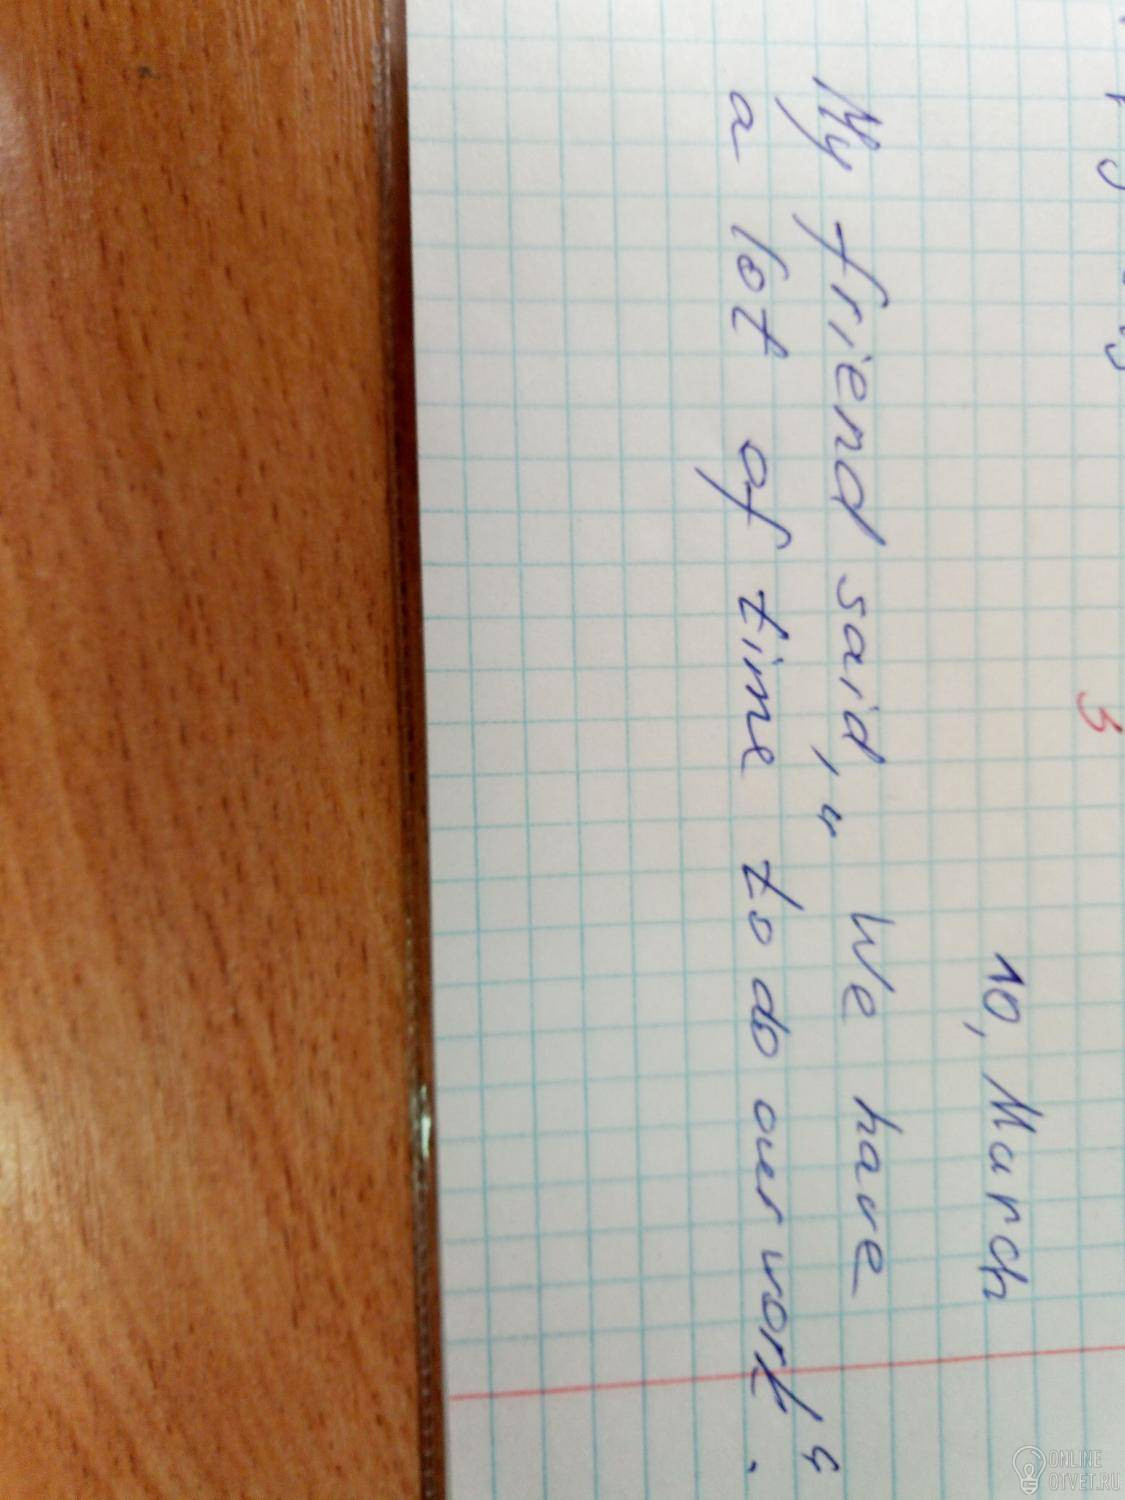 10, March
My friend said, " We have
a lot of time to do over work".
ONLINE
OTVET.RU